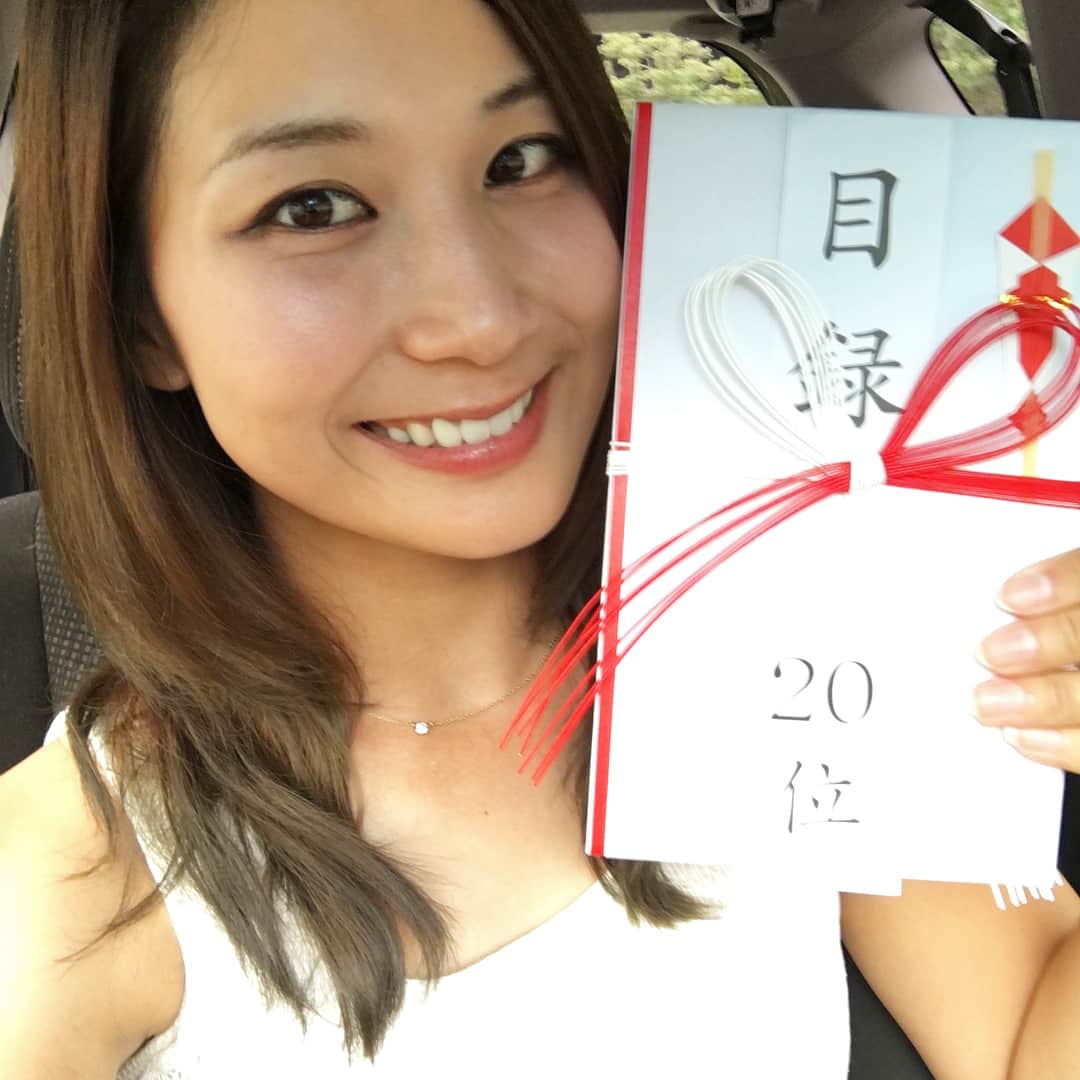 目録
20位